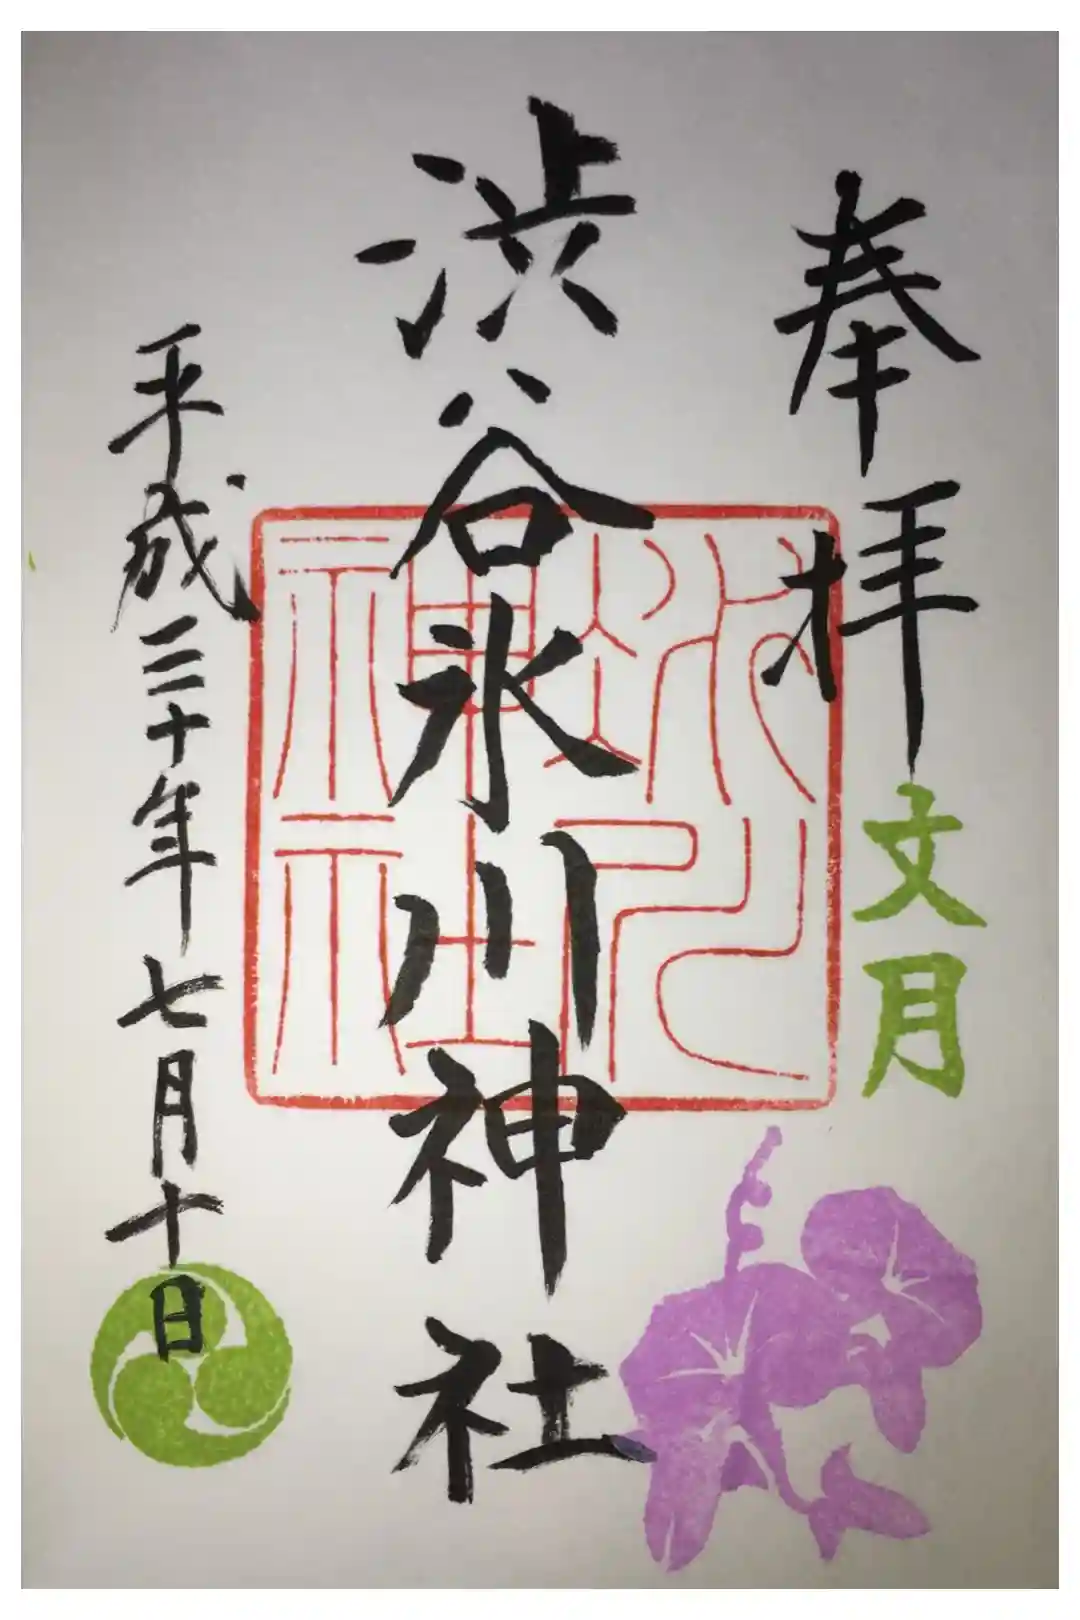 奉拝
文月
渋谷氷川神社
氷川神社
平成三十年七月十日